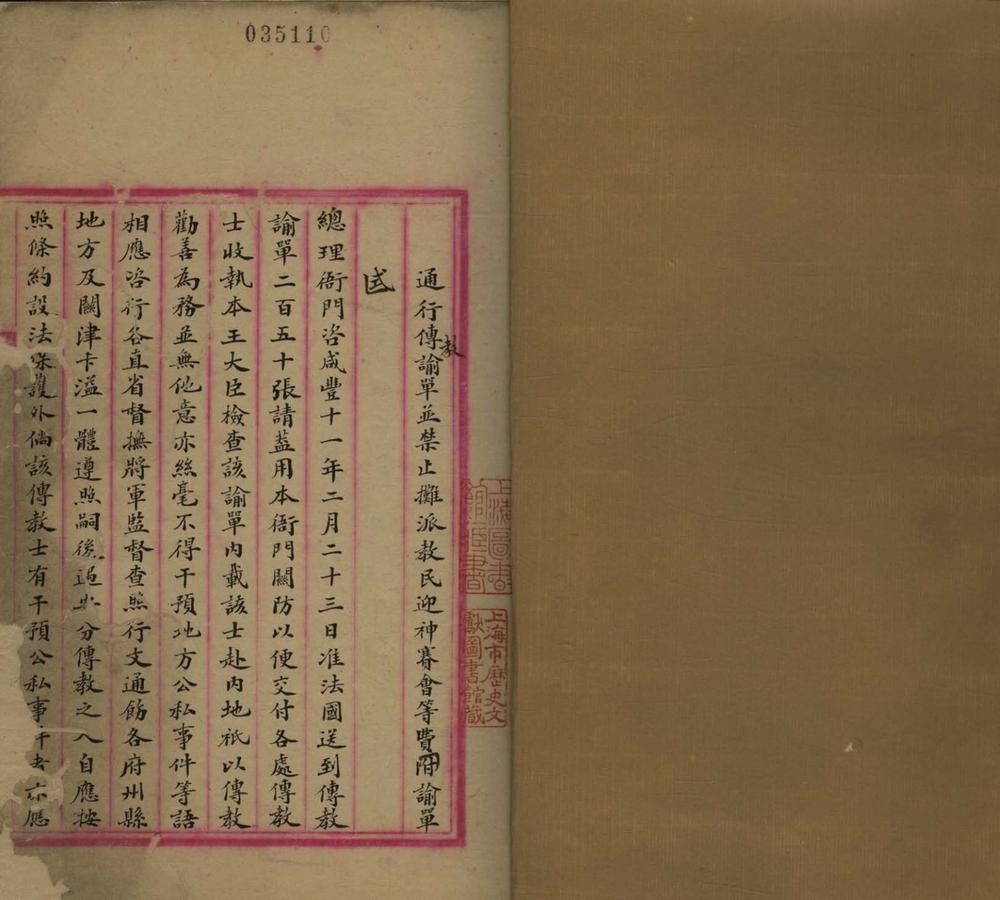 035110
通行傳教諭單並禁止攤派教民迎神賽會等費附諭單
式
總理衙門咨咸豐十一年二月二十三日准法國送到傳教
諭單二百五十張請蓋用本衙門關防以便交付各處傳教
士收執本王大臣檢查該諭單內載該士赴內地祇以傳教
勸善為務並無他意亦絲毫不得干預地方公私事件等語
相應咨行各直省督撫將軍監督查照行文通飭各府州縣
地方及關津卡溢一體遵照嗣後遇安分傳教之人自應按
照條約設法保護外倘該傳教士有干預公私事件者亦應
上海圖書館藏書
上海市歷史文獻圖書館藏